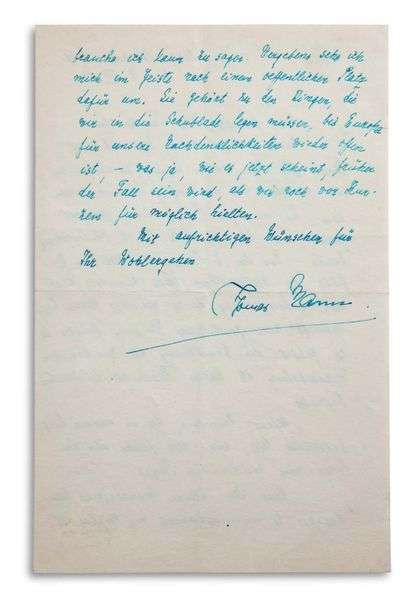 brauche ich kaum zu sagen. Vergebens sehe ich
mich im Geiste nach einem oeffentlichen Platz
dafür um. Sie gehört zu den Dingen, die
wir in die Schublade legen müssen, bis Europa
für unsere Nachdenklichkeiten wieder offen
ist, – was ja, wie es jetzt scheint, früher
der Fall sein wird, als wir noch vor Kur-
zem für möglich hielten.
Mit aufrichtigen Wünschen für
Ihr Wohlergehen
Thomas Mann.